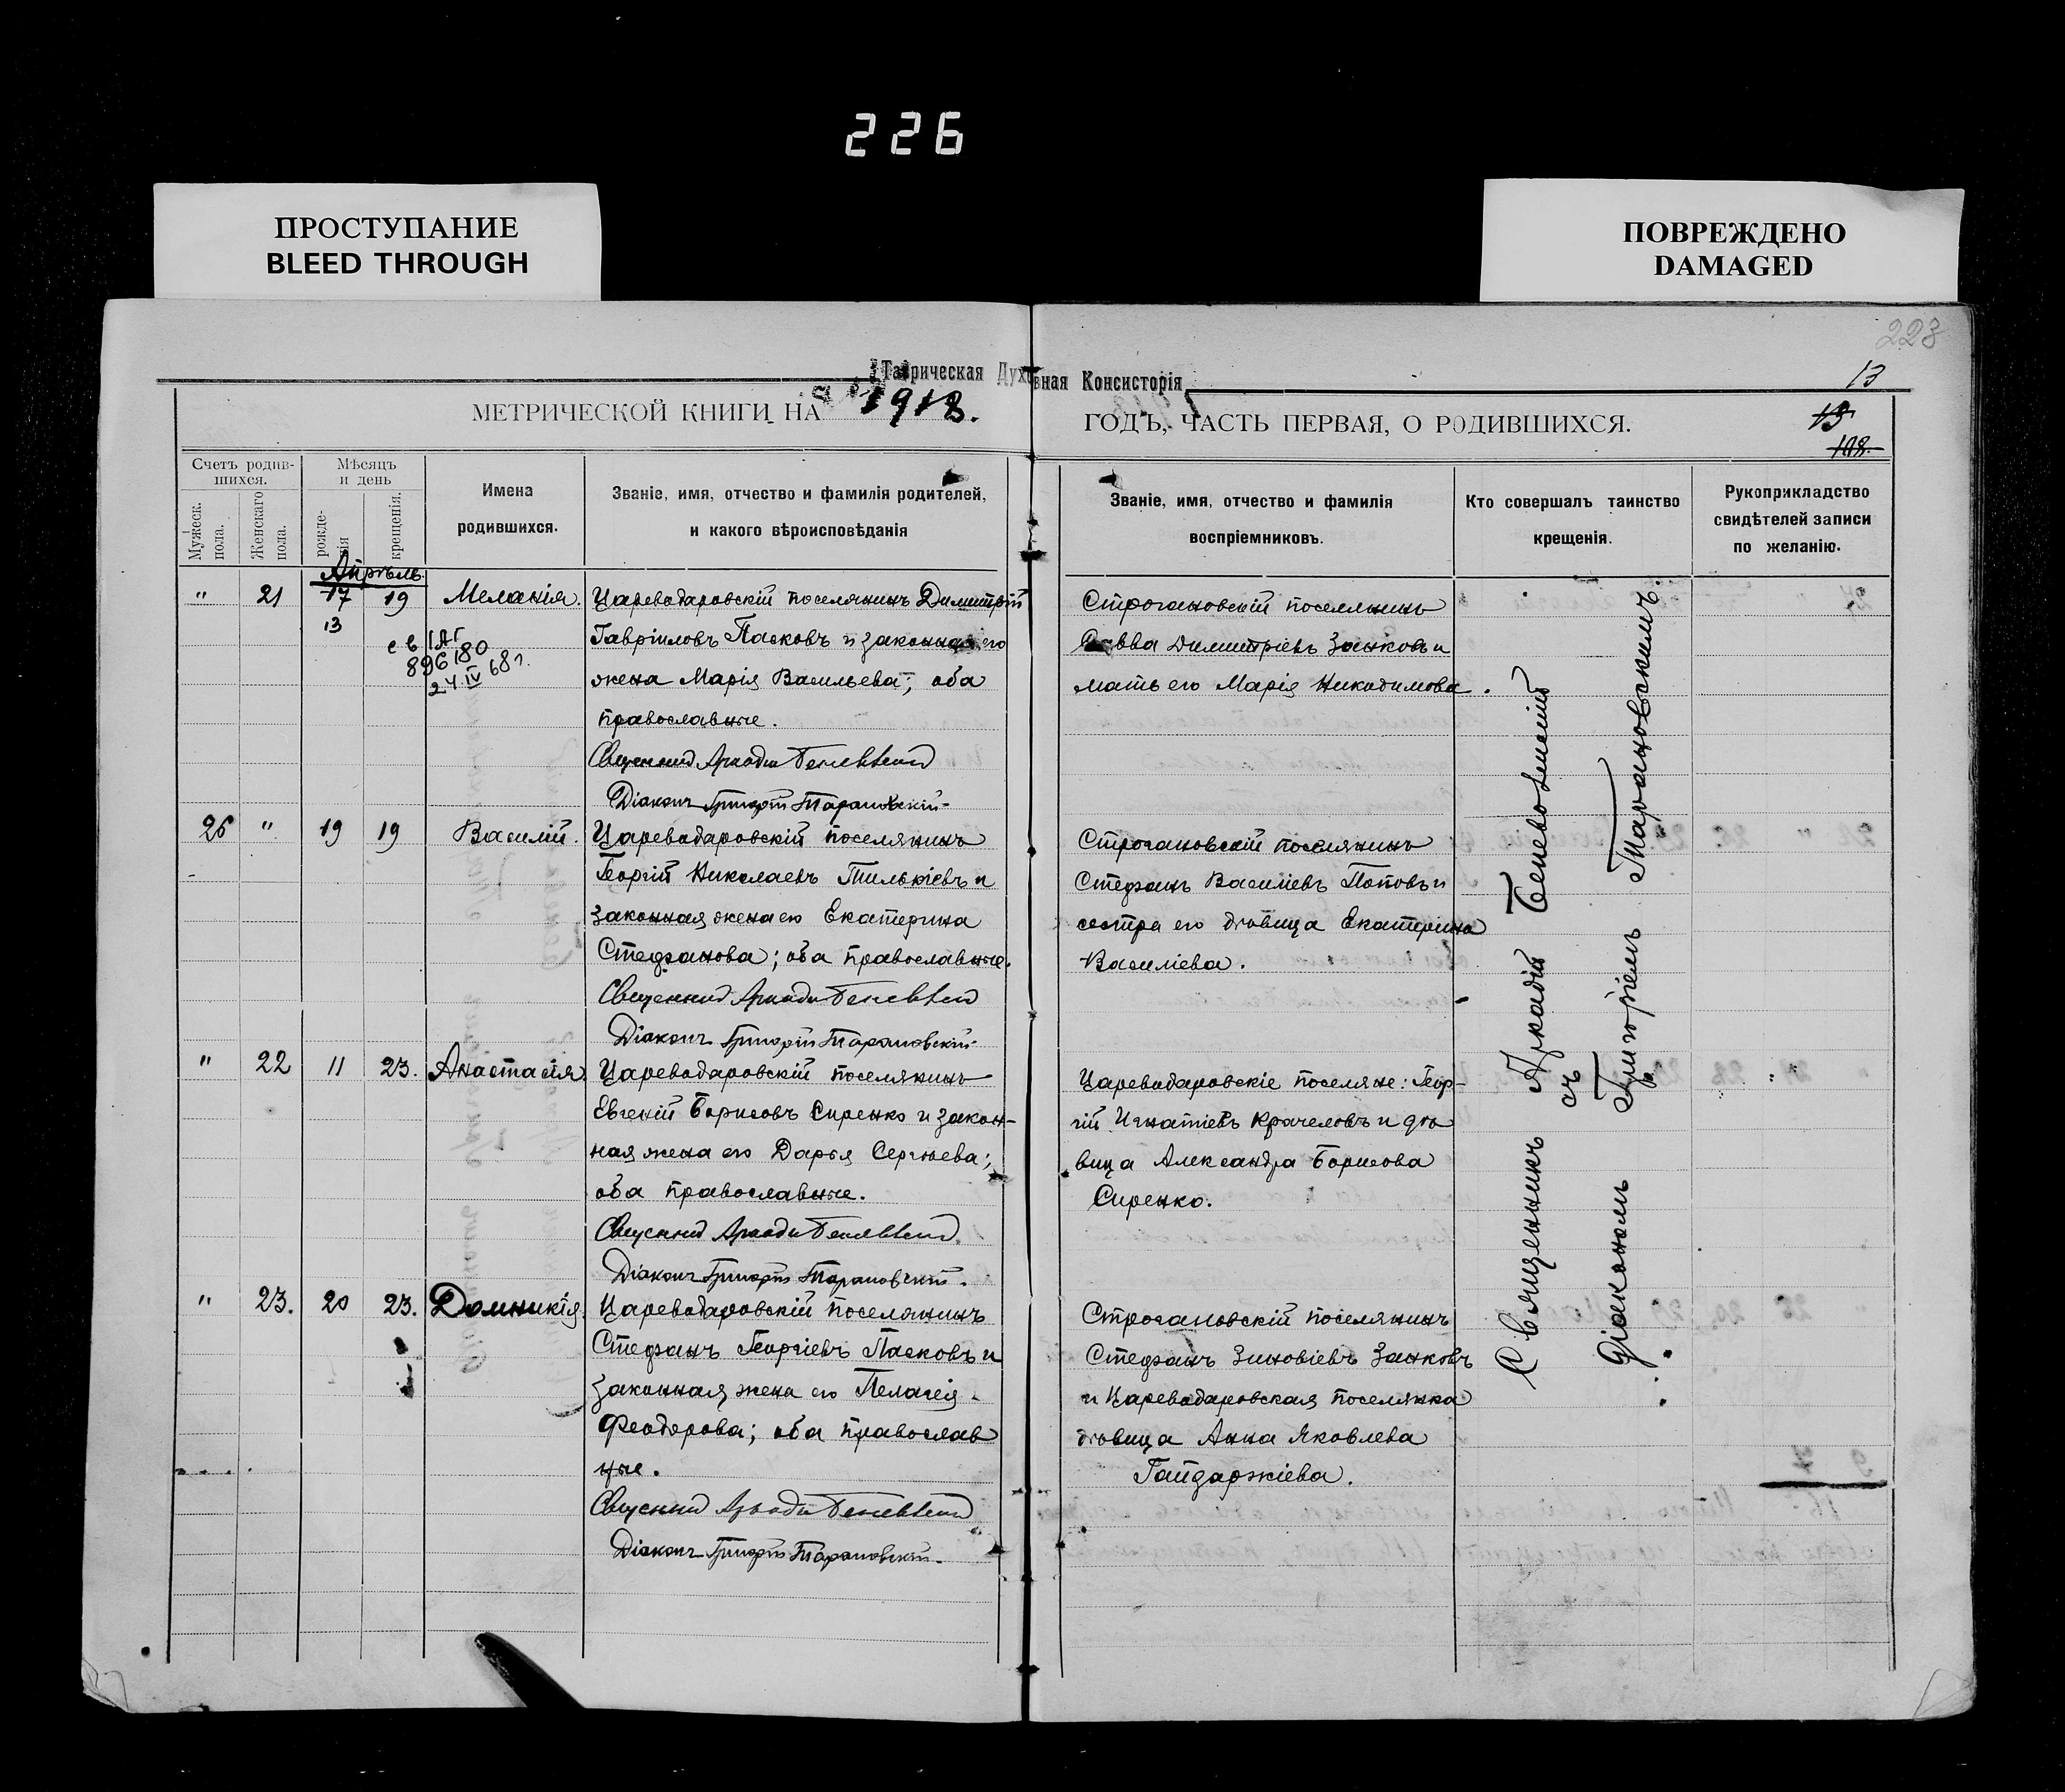 226
ПРОСТУПАНИЕ
BLEED THROUGH
ПОВРЕЖДЕНО
DAMAGED
223
Таврическая Духовная Консисторія
13
МЕТРИЧЕСКОЙ КНИГИ НА 1918. ГОДЪ, ЧАСТЬ ПЕРВАЯ, О РОДИВШИХСЯ.
13
198.
Счетъ родив-
шихся.
Мужеск.
пола.
Женскаго
пола.
Мѣсяцъ
и день
рожде-
нія
крещенія.
Имена
родившихся.
Званіе, имя, отчество и фамилія родителей,
и какого вѣроисповѣданія
Званіе, имя, отчество и фамилія
воспріемниковъ.
Кто совершалъ таинство
крещенія.
Рукоприкладство
свидѣтелей записи
по желанію.
Апрѣль
" 21 17 19 Меланія. Цареводаровскій поселянинъ Димитрій
13
Гавріиловъ Пасковъ и законная его
св IАГ
896180
24.IV 68 г.
жена Марія Васильева; оба
православные.
Священник Аркадій Беневоленскій
Діаконъ Григорій Тарановскій.
Строгановскій поселянинъ
Савва Димитріевъ Занковъ и
мать его Марія Никодимова.
26 " 19 19 Василій. Цареводаровскій поселянинъ
Георгій Николаевъ Тилькіевъ и
законная жена его Екатерина
Стефанова; оба православные.
Священник Аркадій Беневоленскій
Діаконъ Григорій Тарановскій.
Строгановскій поселянинъ
Стефанъ Василіевъ Поповъ и
сестра его дѣвица Екатерина
Василіева.
" 22 11 23. Анастасія. Цареводаровскій поселянинъ
Евгеній Борисовъ Сиренко и закон-
ная жена его Дарья Сергѣева;
оба православные.
Священник Аркадій Беневоленскій
Діаконъ Григорій Тарановскій.
Цареводаровскіе поселяне: Геор-
гій Игнатіевъ Крачеловъ и дѣ
вица Александра Борисова
Сиренко.
" 23. 20 23. Домникія. Цареводаровскій поселянинъ
Стефанъ Георгіевъ Пасковъ и
законная жена его Пелагія
Феодорова; оба православ
ные.
Священник Аркадій Беневоленскій
Діаконъ Григорій Тарановскій.
Строгановскій поселянинъ
Стефанъ Зиновіевъ Занковъ
и Цареводаровская поселянка
дѣвица Анна Яковлева
Гайдаржіева.
Священникъ Аркадій Беневоленскій
съ
діакономъ Григоріемъ Тарановскимъ.